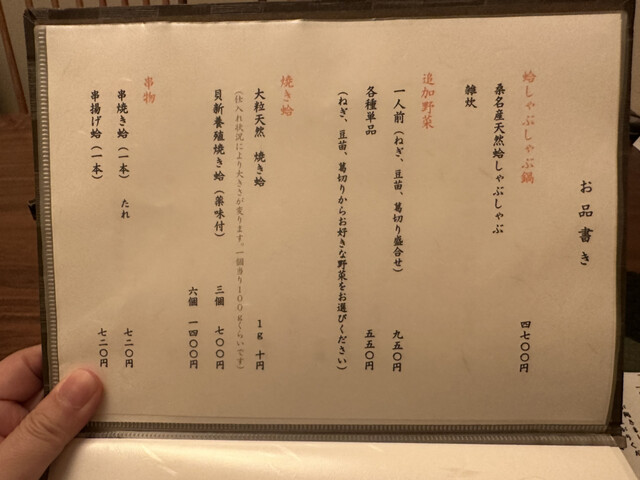 お品書き
蛤しゃぶしゃぶ鍋
四七〇〇円
桑名産天然蛤しゃぶしゃぶ
雑炊
追加野菜
一人前（ねぎ、豆苗、葛切り盛合せ） 九五〇円
各種単品 五五〇円
（ねぎ、豆苗、葛切りからお好きな野菜をお選びください）
焼き蛤
大粒天然 焼き蛤 1g 十円
（仕入れ状況により大きさが変ります。一個当り100gくらいです）
貝新養殖焼き蛤（薬味付） 三個 七〇〇円
六個 一四〇〇円
串物
串焼き蛤（一本） たれ 七二〇円
串揚げ蛤（一本） 七二〇円